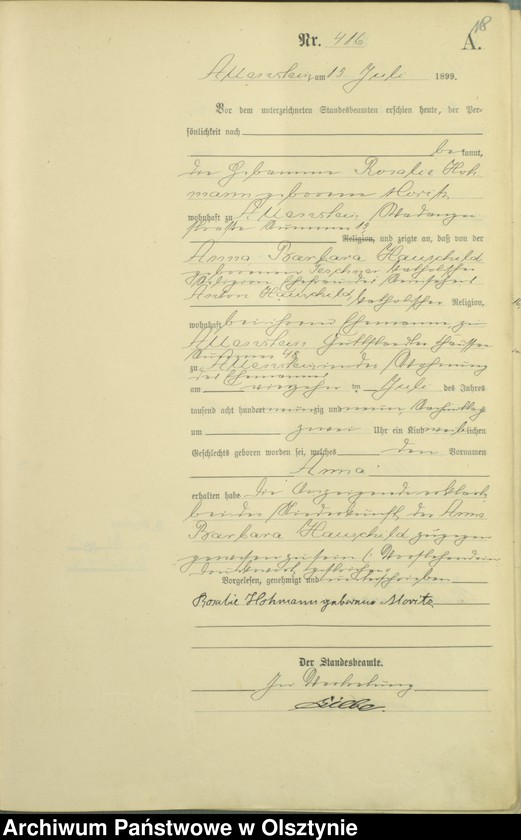 18
Nr. 416 A.
Allenstein, am 15 Juli 1899.
Vor dem unterzeichneten Standesbeamten erschien heute, der Per-
sönlichkeit nach
be kannt,
die Hebamme Rosalie Hoh-
mann geborene Moritz
wohnhaft zu Allenstein,
straße Nummer 19
Religion, und zeigte an, daß von der
Anna Barbara Hauschild
geborenen Teschner katholischer
Religion Ehefrau des
Anton Hauschild, katholischer Religion,
wohnhaft bei ihrem Ehemanne zu
Allenstein Guttstädter Chaussee
Nummer 48
zu Allenstein in der Wohnung
des Ehemanns
am vierzehn ten Juli des Jahres
tausend acht hundert neunzig und neun Nachmittag
um zwei Uhr ein Kind weiblichen
Geschlechts geboren worden sei, welches den Vornamen
Anna
erhalten habe Die Anzeigende erklärt,
bei der Niederkunft der Anna
Barbara Hauschild zugegen
gewesen zu sein. Vorstehend ein
Druckwort gestrichen
Vorgelesen, genehmigt und unterschrieben
Rosalie Hohmann geborene Moritz
Der Standesbeamte.
In Vertretung
Archiwum Państwowe w Olsztynie